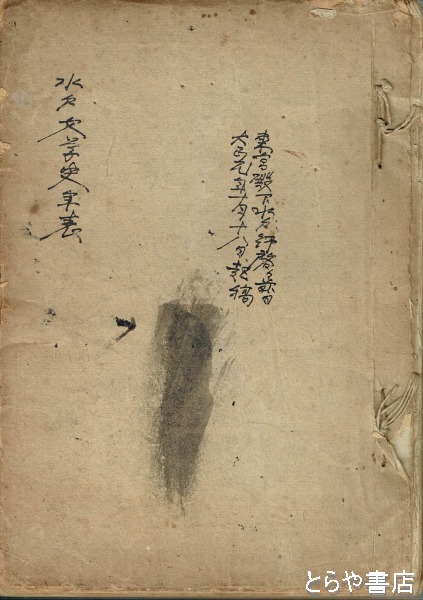 東宮殿下水戸行啓之前日
大正元年十月十八日起稿
水戸文学史年表
とらや書店